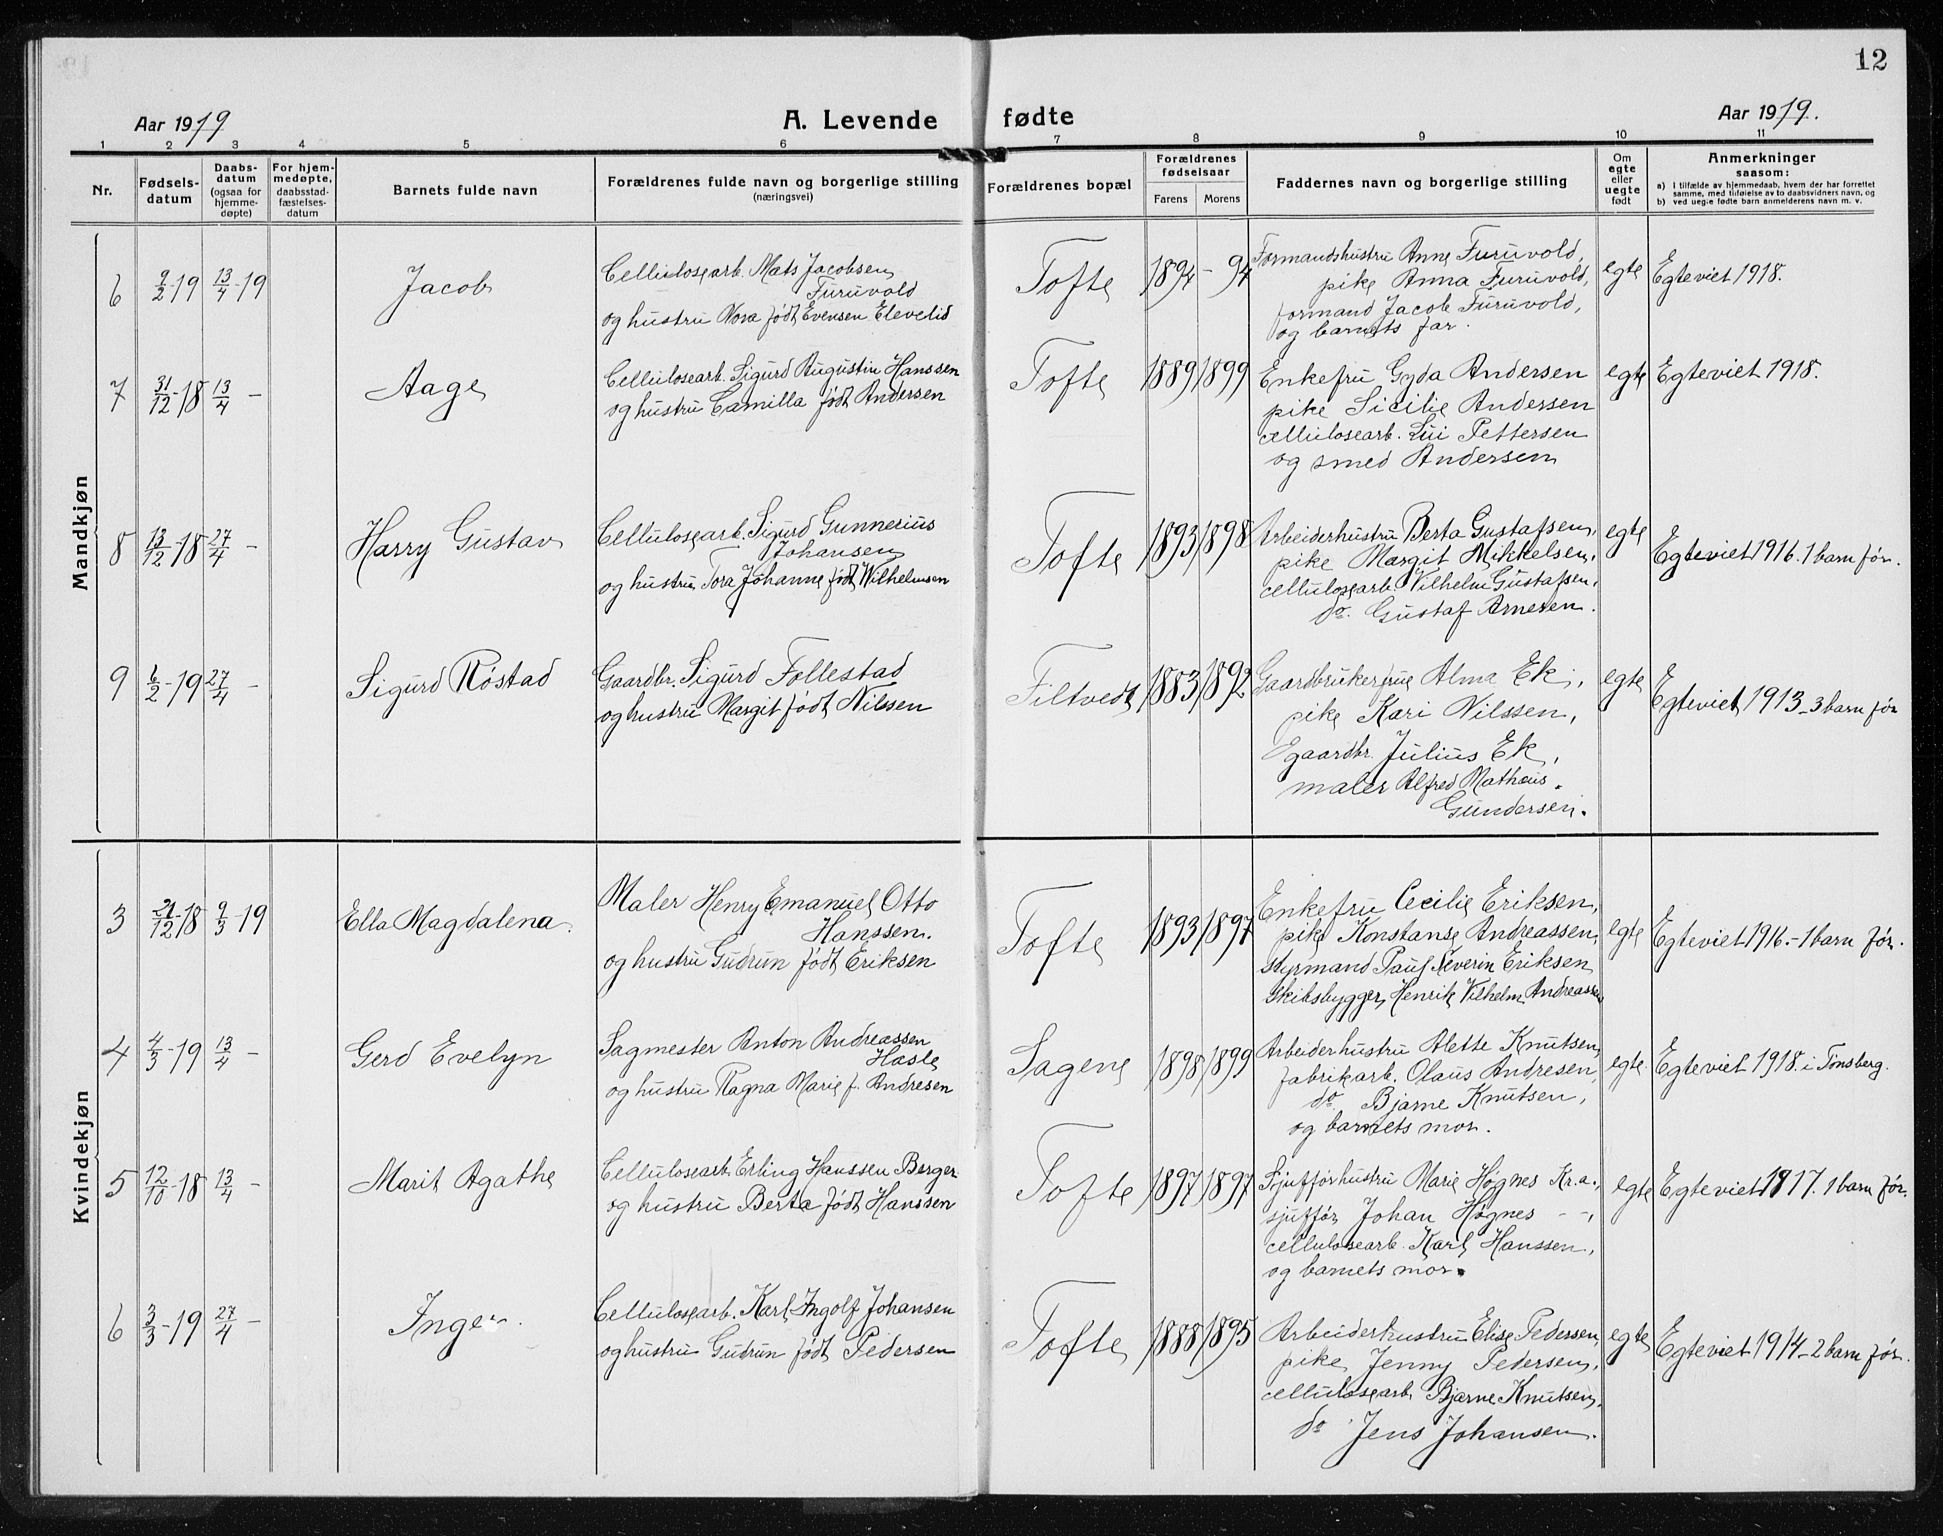 12
Aar 1919 A. Levende fødte Aar 1919.
1 2 3 4 5 6 7 8 9 10 11
Nr.
Fødsels-
datum
Daabs-
datum
(ogsaa for
hjemme-
døpte)
For hjem-
medøpte,
daabsstad-
fæstelses-
datum
Barnets fulde navn
Forældrenes fulde navn og borgerlige stilling
(næringsvei)
Forældrenes bopæl
Forældrenes
fødselsaar
Farens Morens
Faddernes navn og borgerlige stilling
Om
egte
eller
uegte
født
Anmerkninger
saasom:
a) I tilfælde av hjemmedaab, hvem der har forrettet
samme, med tilføielse av to daabsvidners navn, og
b) ved ueg.e fødte barn anmelderens navn m. v.
Mandkjøn
6 9/2-19 13/4-19 Jacob
Cellulosearb. Mats Jacobsen
Furuvold
og hustru Nora født Evensen Elevelid
Tofte 1894 - 94
Formandshustru Anne Furuvold,
pike Anna Furuvold,
formand Jacob Furuvold,
og barnets far.
egte Egteviet 1918.
7 31/12-18 13/4 - Aage
Cellulosearb. Sigurd Augustin Hanssen
og hustru Camilla født Andersen
Tofte 1889 1899
Enkefru Gyda Andersen
pike Sicilie Andersen
cellulosearb. Lui Pettersen
og smed Andersen
egte Egteviet 1918.
8 13/12-18 27/4 - Harry Gustav
Cellulosearb. Sigurd Gunnerius
Johansen
og hustru Tora Johanne født Wilhelmsen
Tofte 1893 1898
Arbeiderhustru Berta Gustafsen,
pike Margit Mikkelsen,
cellulosearb. Vilhelm Gustafsen,
do. Gustaf Arnesen.
egte Egteviet 1916. 1 barn før.
9 6/2-19 27/4 - Sigurd Røstad
Gaardbr. Sigurd Follestad
og hustru Margit født Nilssen
Filtvedt 1883 1892
Gaardbrukerfrue Alma Ek,
pike Kari Nilssen,
Egaardbr. Julius Ek,
maler Alfred Matheus
Gundersen.
egte Egteviet 1913 - 3 barn før
Kvindekjøn
3 21/12-18 9/3-19 Ella Magdalena.
Maler Henry Emanuel Otto
Hanssen.
og hustru Gudrun født Eriksen
Tofte 1893 1897
Enkefru Cecilie Eriksen,
pike Konstanse Andreassen,
styrmand Paul Severin Eriksen
Skibsbygger, Henrik Vilhelm Andreassen
egte Egteviet 1916. - 1 barn før.
4 4/3-19 13/4 - Gerd Evelyn
Sagmester Anton Andreassen
Hasle
og hustru Ragna Marie f. Andresen
Sagene 1898 1899
Arbeiderhustru Alette Knutsen,
fabrikarb. Olaus Andresen,
do Bjarne Knutsen,
og barnets mor.
egte Egteviet 1918. i Tønsberg.
5 12/10-18 13/4 - Marit Agathe
Cellulosearb. Erling Hanssen Berger
og hustru Berta født Hanssen
Tofte 1897 1897
Sjufførhustru Marie Høgnes Kr.a.,
sjuffør Johan Høgnes - -,
cellulosearb. Karl Hanssen,
og barnets mor.
egte Egteviet 1917. 1 barn før.
6 3/3-19 27/4 - Inger.
Cellulosearb. Karl Ingolf Johansen
og hustru Gudrun født Pedersen
Tofte 1888 1895
Arbeiderhustru Elise Pedersen,
pike Jenny Pedersen,
cellulosearb Bjarne Knutsen,
do Jens Johansen.
egte Egteviet 1914 - 2 barn før.